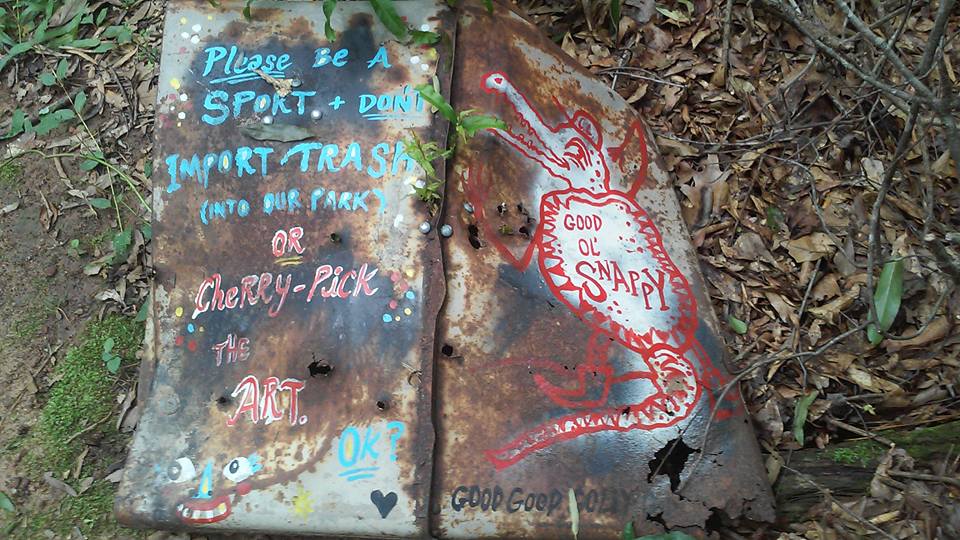 Please Be A
SPORT + DON'T
IMPORT TRASH
(INTO OUR PARK)
OR
CHERRY-PiCK
THE
ART.
OK?
GOOD
OL'
SNAPPY
GOOD GOOD GOLLY